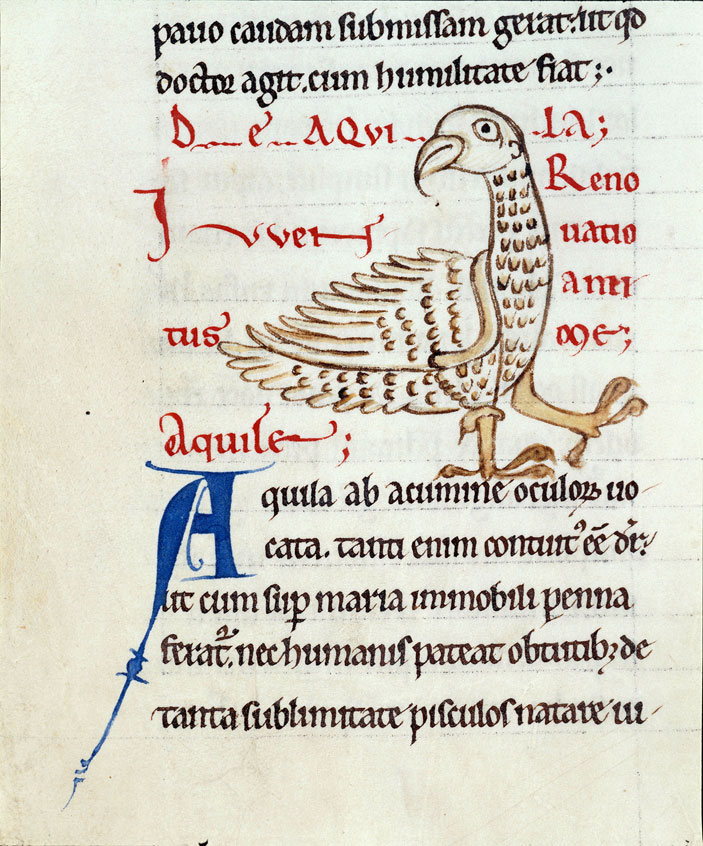 pauo caudam submissam gerat. ut qd
doctor agit. cum humilitate fiat;·
De AQuiLA;
Reno
Iuven uatio
ani
tus me;
Aquile;
Aquila ab acumine oculoꝝ uo-
cata. tanti enim contuitꝰ eē dr̄.
ut cum suꝑ maria immobili penna
ferat᷑. nec humanis pateat obtutibꝫ de
tanta sublimitate pisculos natare ui-